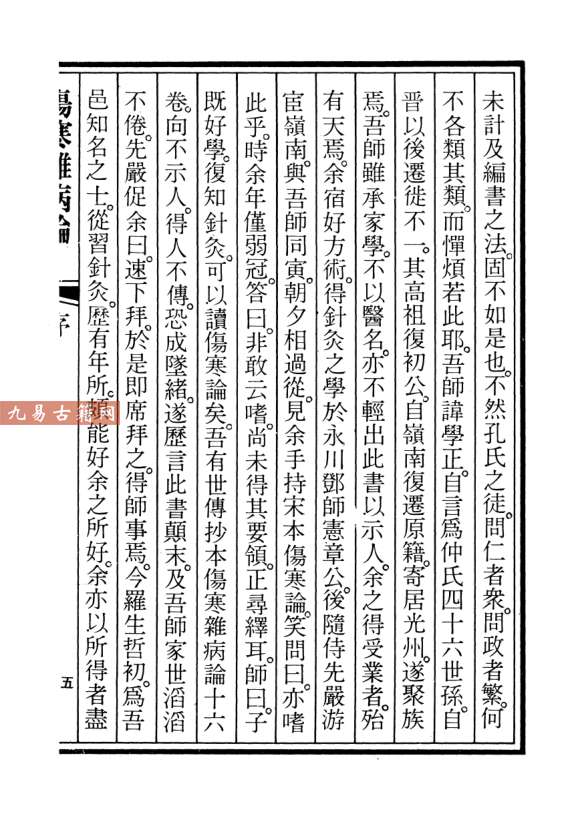 未計及編書之法。固不如是也。不然孔氏之徒。問仁者衆。問政者繁。何
不各類其類。而憚煩若此耶。吾師諱學正。自言爲仲氏四十六世孫。自
晉以後遷徙不一。其高祖復初公。自嶺南復遷原籍。寄居光州。遂聚族
焉。吾師雖承家學。不以醫名。亦不輕出此書以示人。余之得受業者。殆
有天焉。余宿好方術。得針灸之學於永川鄧師憲章公。後隨侍先嚴游
宦嶺南。與吾師同寅。朝夕相過從。見余手持宋本傷寒論。笑問曰。亦嗜
此乎。時余年僅弱冠。答曰。非敢云嗜。尚未得其要領。正尋繹耳。師曰。子
既好學。復知針灸。可以讀傷寒論矣。吾有世傳抄本傷寒雜病論十六
卷。向不示人。得人不傳。恐成墜緒。遂歷言此書顛末。及吾師家世滔滔
不倦。先嚴促余曰。速下拜。於是即席拜之。得師事焉。今羅生哲初。爲吾
邑知名之士。從習針灸。歷有年所。頗能好余之所好。余亦以所得者盡
傷寒雜病論 序
五
九易古籍网